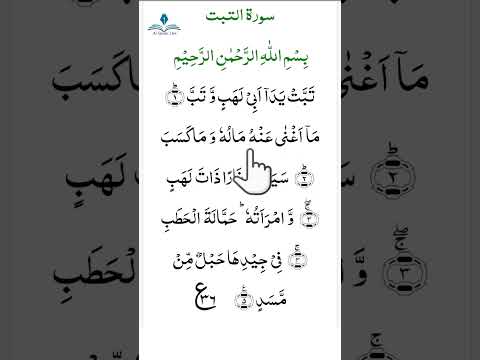 Al Islamic Libs
سورة التبت
بِسْمِ اللّٰهِ الرَّحْمٰنِ الرَّحِيْمِ
تَبَّتْ يَدَاۤ اَبِيْ لَهَبٍ وَّ تَبَّ ۝۱ؕ
مَاۤ اَغْنٰى عَنْهُ مَالُهٗ وَ مَا كَسَبَ
۝۲ؕ نَارًا ذَاتَ لَهَبٍ
۝۳ۚۖ وَّ امْرَاَتُهٗ ؕ حَمَّالَةَ الْحَطَبِ
۝۴ۚ فِيْ جِيْدِهَا حَبْلٌ مِّنْ
مَّسَدٍ ۝۵۠ ع ۳۶